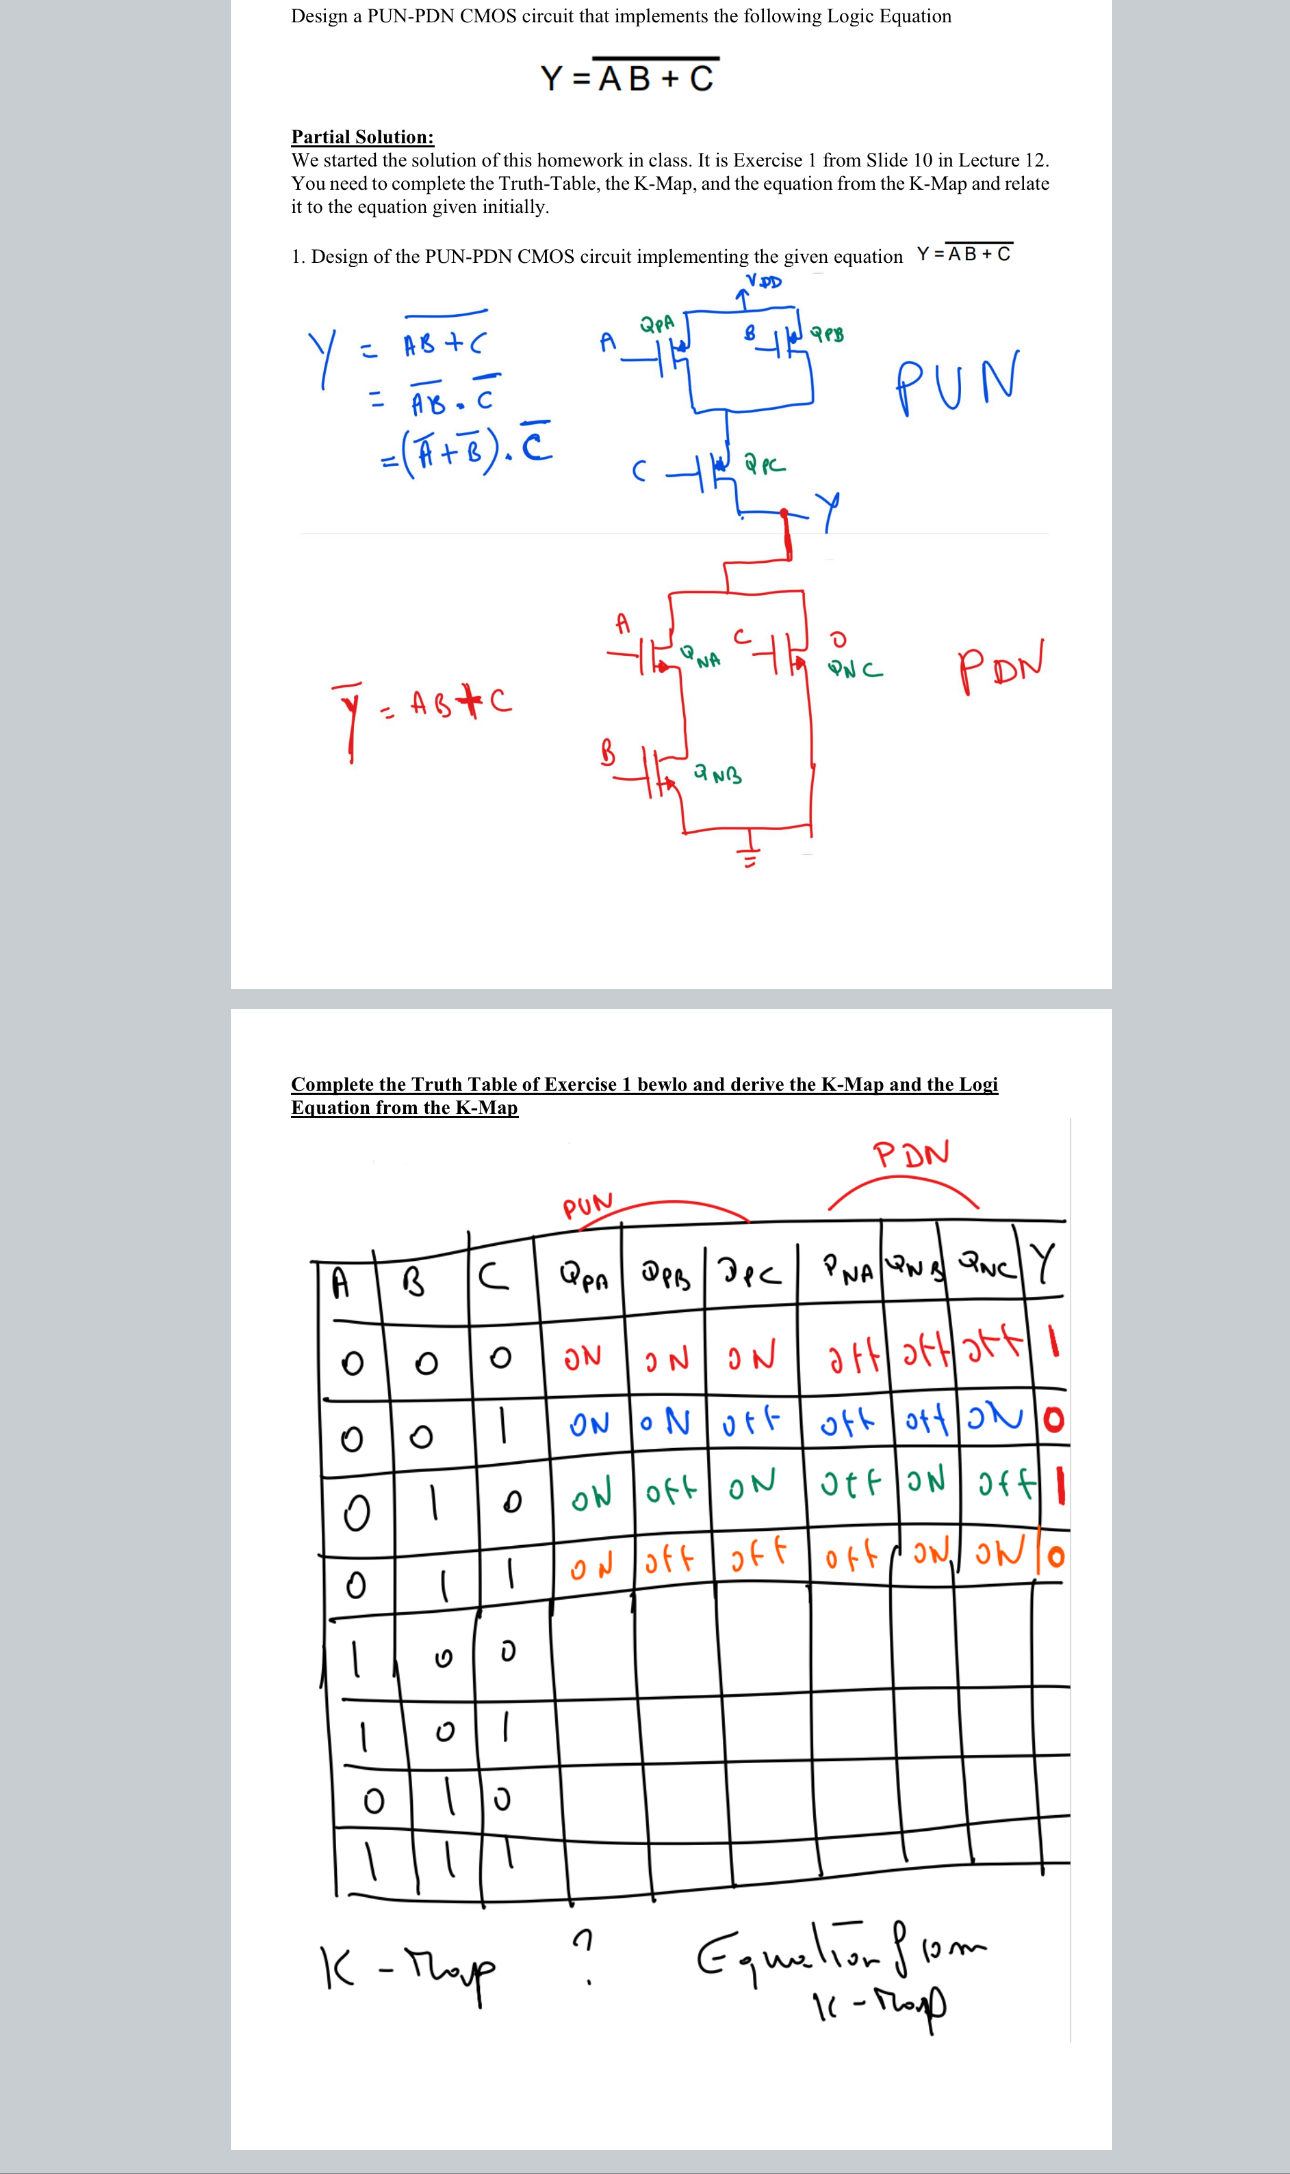 Design a PUN-PDN CMOS circuit that implements the following Logic Equation
Y = \overline{A B + C}
Partial Solution:
We started the solution of this homework in class. It is Exercise 1 from Slide 10 in Lecture 12.
You need to complete the Truth-Table, the K-Map, and the equation from the K-Map and relate
it to the equation given initially.
1. Design of the PUN-PDN CMOS circuit implementing the given equation Y = \overline{A B + C}
VDD
Y = \overline{AB + C}
= \overline{AB} . \overline{C}
= (\overline{A} + \overline{B}) . \overline{C}
A QPA B QPB
PUN
C QPC
Y
A QNA C O QNC
PDN
\overline{Y} = AB + C
B QNB
Complete the Truth Table of Exercise 1 bewlo and derive the K-Map and the Logi
Equation from the K-Map
PDN
PUN
A B C QPA QPB QPC QNA QNB QNC Y
0 0 0 ON ON ON off off off 1
0 0 1 ON ON off off off ON 0
0 1 0 ON off ON off ON off 1
0 1 1 ON off off off ON ON 0
1 0 0
1 0 1
0 1 0
1 1 1
K-Map ? Equation from
K-Map